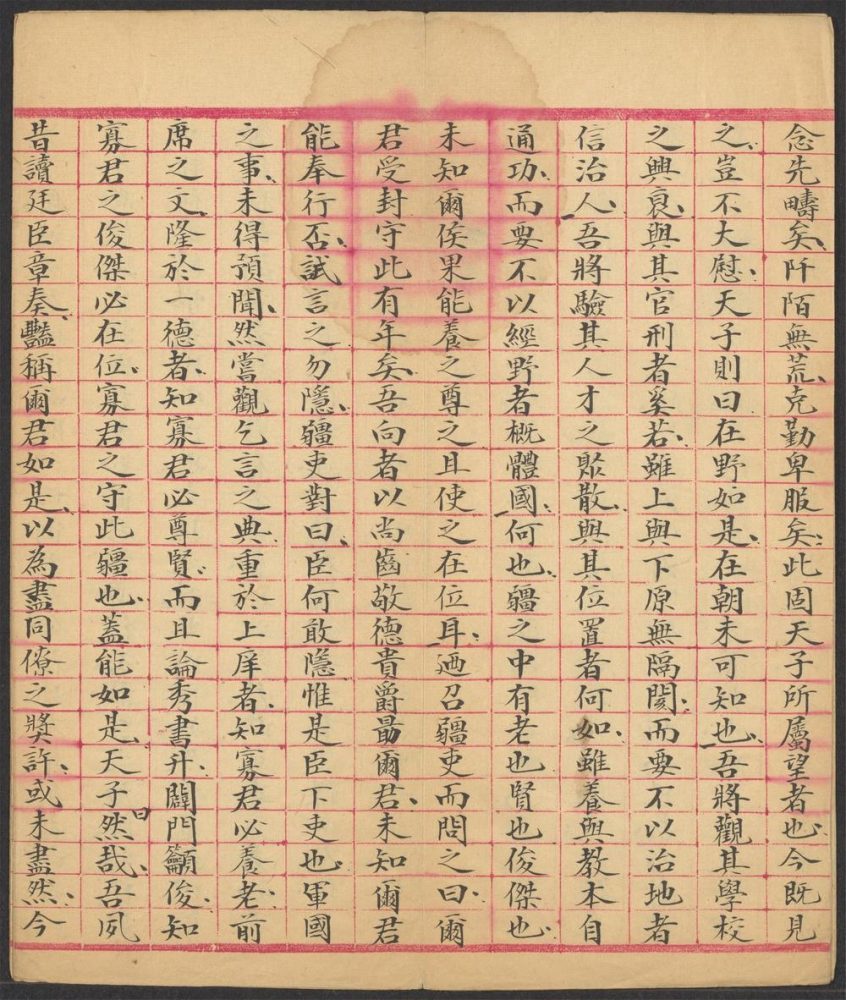 念先疇矣阡陌無荒克勤卑服矣此固天子所屬望者也今既見
之豈不大慰天子則曰在野如是在朝未可知也吾將觀其學校
之興衰與其官刑者奚若雖上與下原無隔閡而要不以治地者
信治人吾將驗其人才之聚散與其位置者何如雖養與教本自
通功而要不以經野者概體國何也疆之中有老也賢也俊傑也
未知爾侯果能養之尊之且使之在位耳迺召疆吏而問之曰爾
君受封守此有年矣吾向者以尚齒敬德貴爵勗爾君未知爾君
能奉行否試言之勿隱疆吏對曰臣何敢隱惟是臣下吏也軍國
之事未得預聞然嘗觀乞言之典重於上庠者知寡君必養老前
席之文隆於一德者知寡君必尊賢而且論秀書升闢門籲俊知
寡君之俊傑必在位寡君之守此疆也蓋能如是天子曰然哉吾夙
昔讀廷臣章奏豔稱爾君如是以為盡同僚之獎許或未盡然今